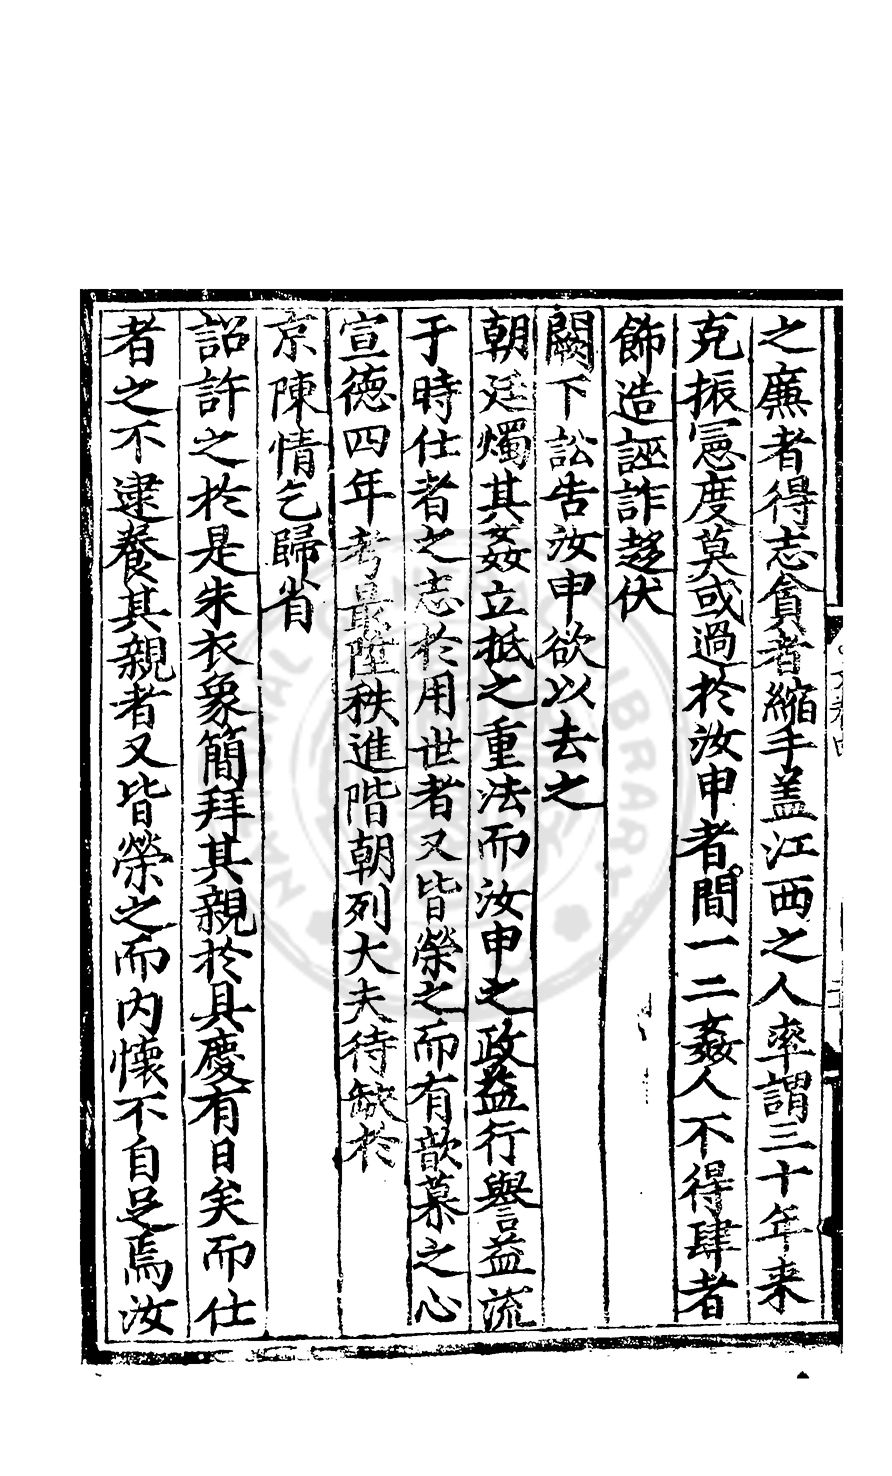 之廉者得志貪者縮手盖江西之人率謂三十年来
克振憲度莫或過於汝申者間一二姦人不得肆者
飾造誣詐趍伏
闕下訟告汝申欲以去之
朝廷燭其姦立抵之重法而汝申之政益行譽益流
于時仕者之志於用世者又皆榮之而有歆慕之心
宣德四年考最陞秩進階朝列大夫待缺於
京陳情乞歸省
詔許之於是朱衣象簡拜其親於具慶有日矣而仕
者之不逮養其親者又皆榮之而内懷不自足焉汝
NATIONAL LIBRARY